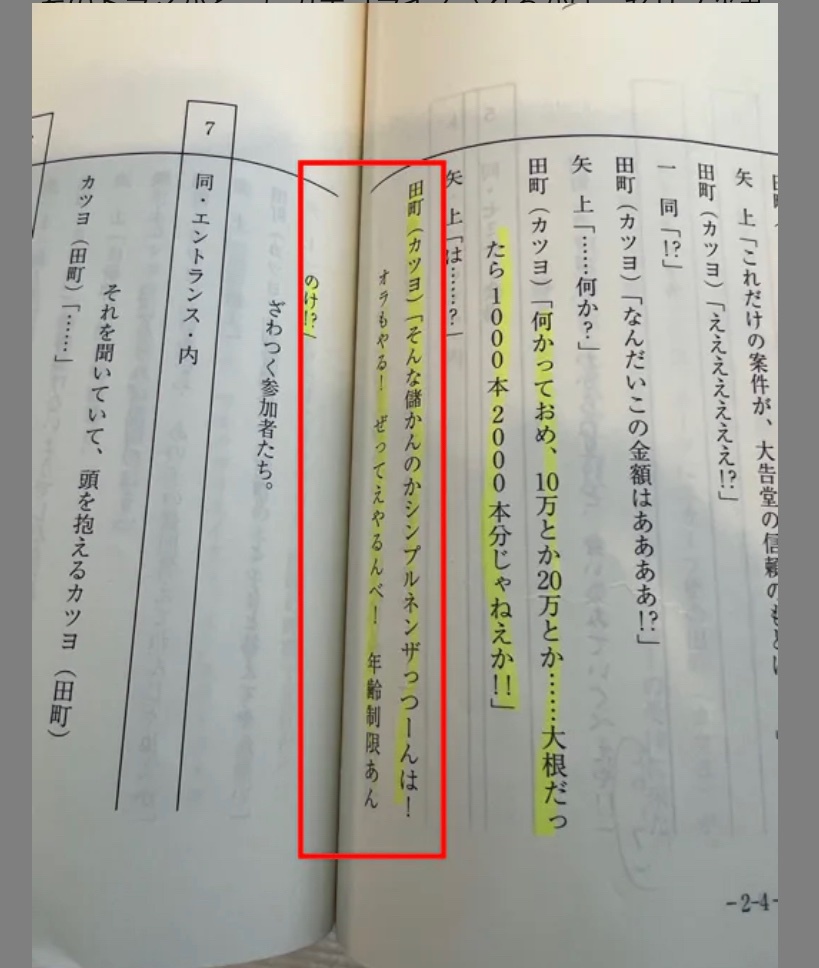 矢　上「これだけの案件が、大告堂の信頼のもとに
田町（カツヨ）「ええええええええ!?」
一　同「!?」
田町（カツヨ）「なんだいこの金額はああああ!?」
矢　上「……何か？」
田町（カツヨ）「何かっておめ、10万とか20万とか……大根だっ
たら1000本2000本分じゃねえか!!」
矢　上「は……？」
田町（カツヨ）「そんな儲かんのかシンプルネンザっつーんは！
オラもやる！　ぜってえやるんべ！　年齢制限あん
のけ!?」
ざわつく参加者たち。
7　同・エントランス・内
それを聞いていて、頭を抱えるカツヨ（田町）
カツヨ（田町）「……」
-2-4-